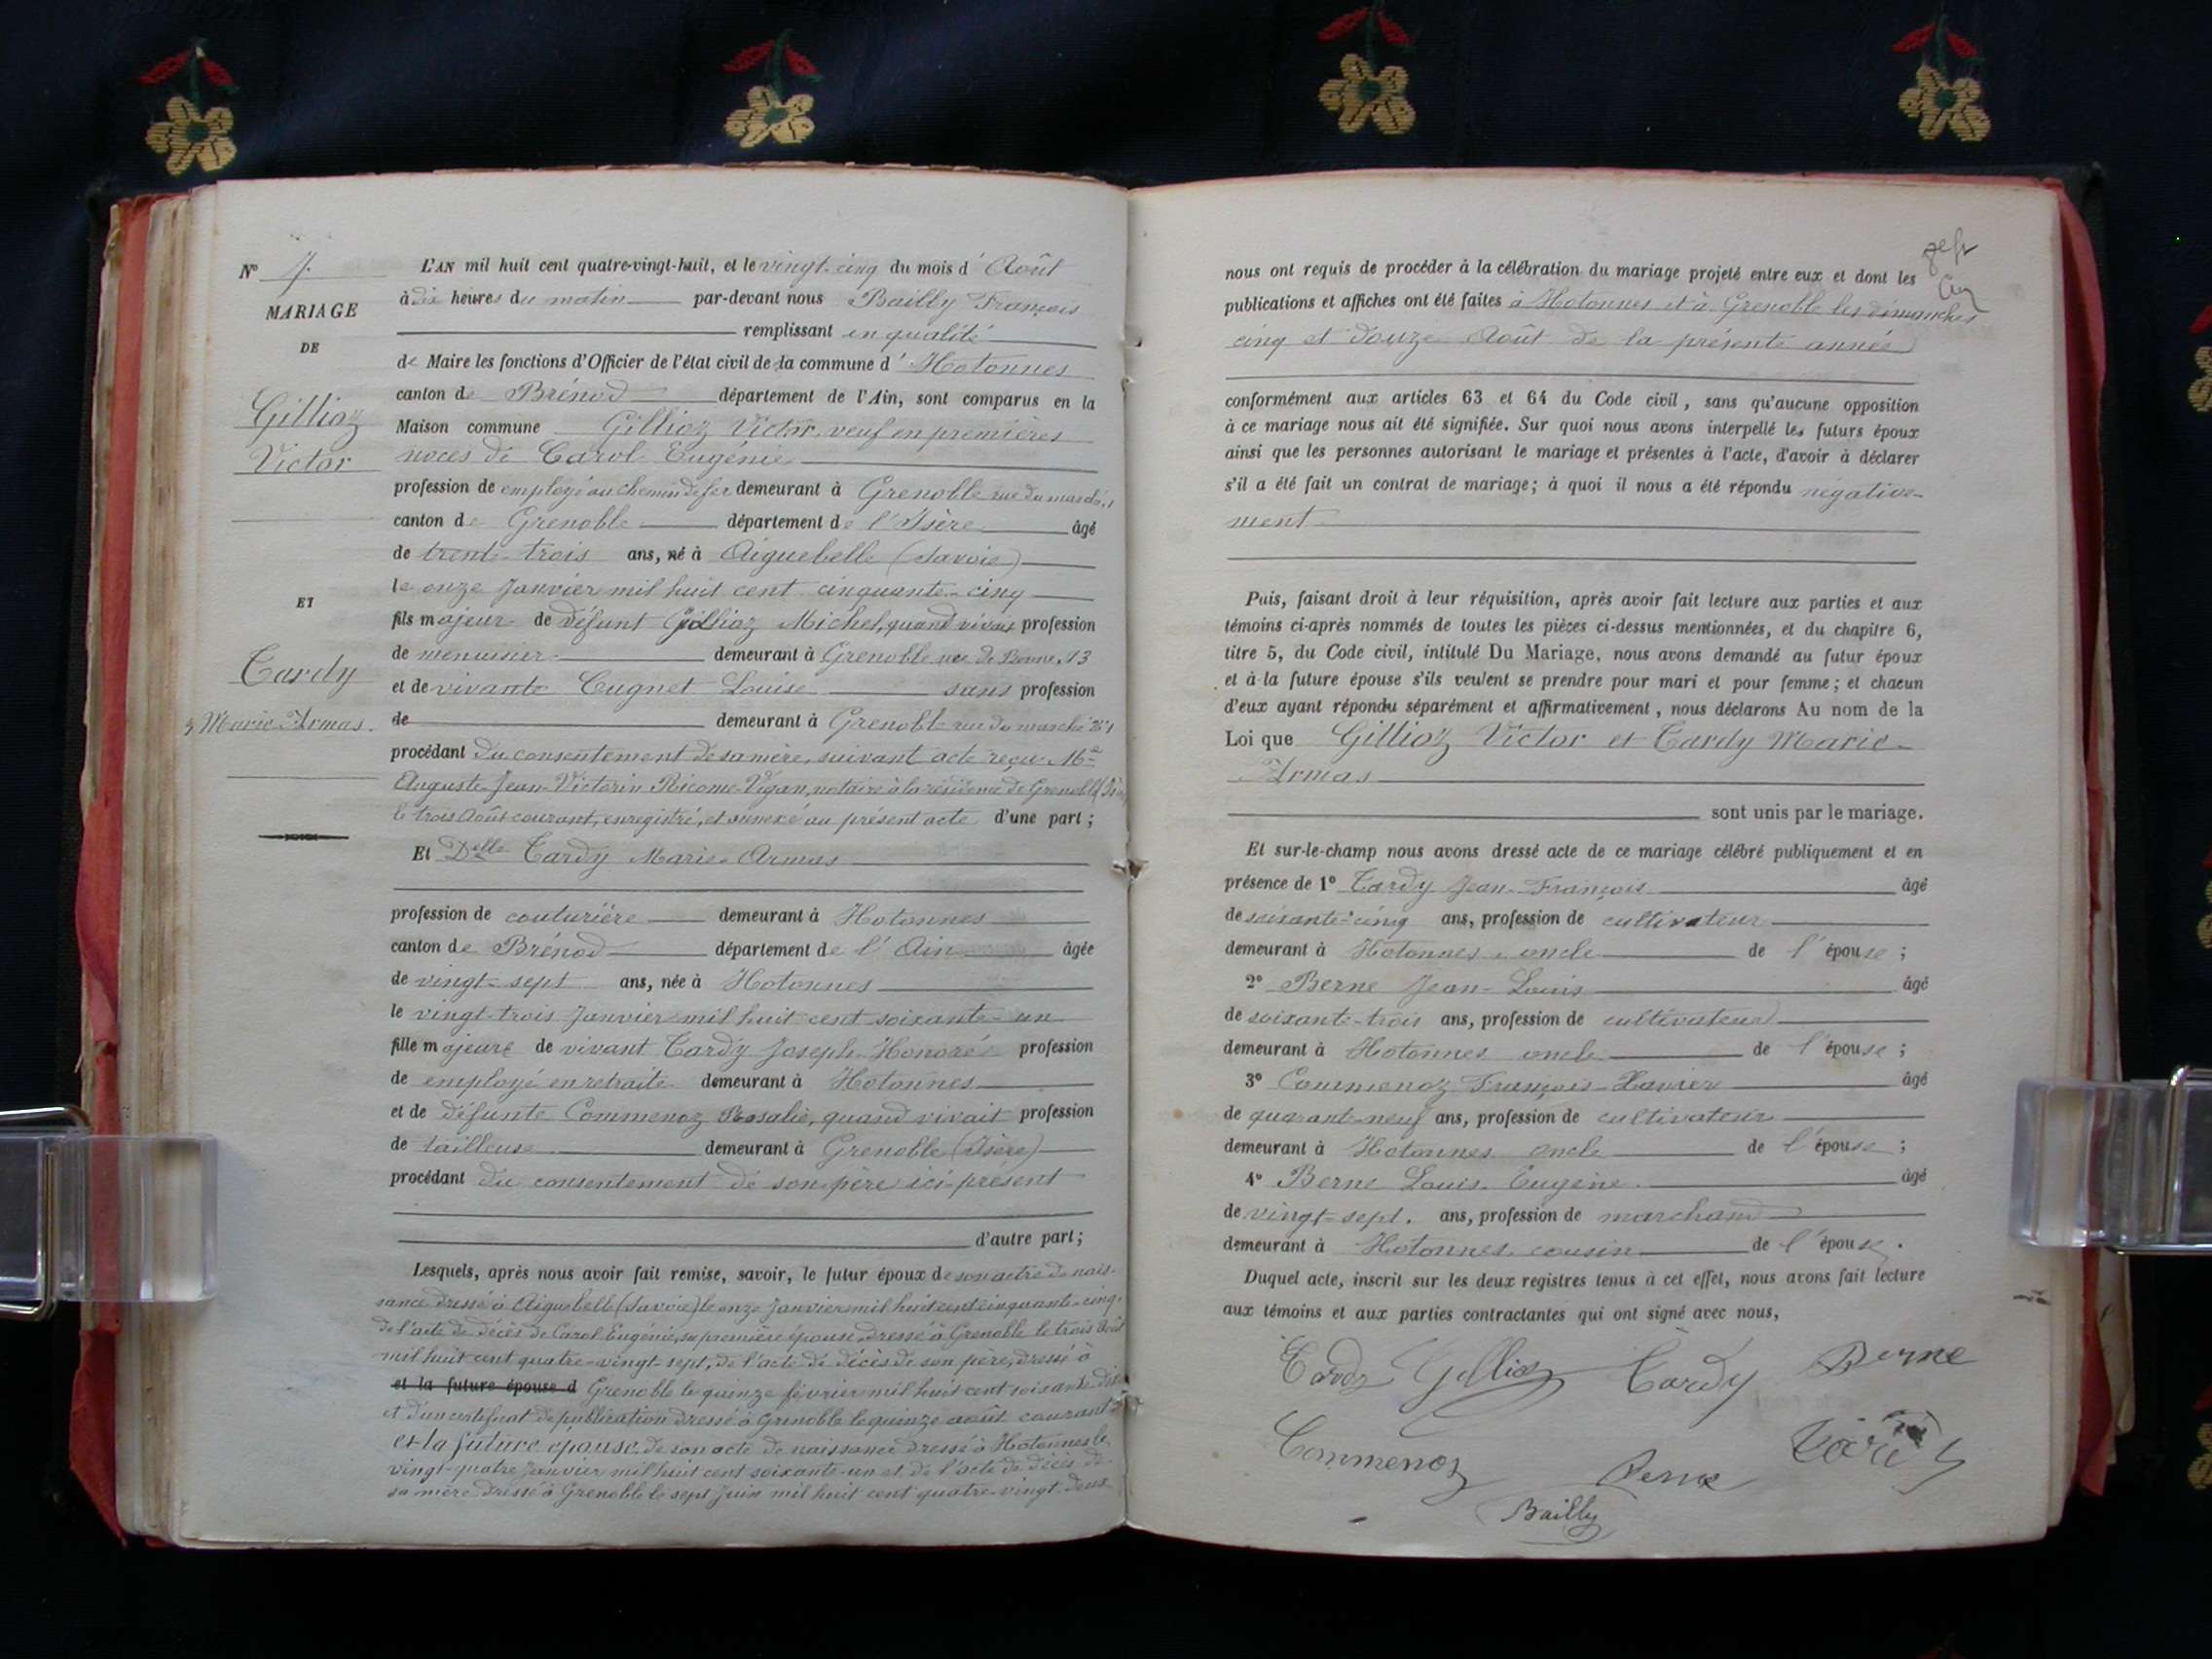 N° 7.
MARIAGE
DE
Gillioz
Victor
ET
Tardy
Marie Armas.
L'AN mil huit cent quatre-vingt-huit, et le vingt-cinq du mois d'Août
à dix heures du matin par-devant nous Bailly François
remplissant en qualité
de Maire les fonctions d'Officier de l'état civil de la commune d'Hotonnes
canton de Brénod département de l'Ain, sont comparus en la
Maison commune Gillioz Victor, veuf en premières
noces de Carol Eugénie
profession de employé au chemin de fer demeurant à Grenoble rue du marché, 1
canton de Grenoble département de l'Isère âgé
de trente-trois ans, né à Aiguebelle (Savoie)
le onze Janvier mil huit cent cinquante-cinq
fils majeur de défunt Gillioz Michel, quand vivait profession
de menuisier demeurant à Grenoble rue de Bonne, 13
et de vivante Cugnet Louise sans profession
de demeurant à Grenoble rue du marché N° 1
procédant du consentement de sa mère, suivant acte reçu Me
Auguste-Jean-Victorin Ricome-Vigan, notaire à la résidence de Grenoble (Isère)
le trois Août courant, enregistré, et annexé au présent acte d'une part ;
Et Delle Tardy Marie-Armas
profession de couturière demeurant à Hotonnes
canton de Brénod département de l'Ain âgée
de vingt-sept ans, née à Hotonnes
le vingt-trois Janvier mil huit cent soixante-un
fille majeure de vivant Tardy Joseph-Honoré profession
de employé en retraite demeurant à Hotonnes
et de défunte Commenoz Rosalie, quand vivait profession
de tailleuse demeurant à Grenoble (Isère)
procédant du consentement de son père ici-présent
d'autre part ;
Lesquels, après nous avoir fait remise, savoir, le futur époux de son acte de nais-
sance dressé à Aiguebelle (Savoie) le onze Janvier mil huit cent cinquante-cinq,
de l'acte de décès de Carol Eugénie, sa première épouse, dressé à Grenoble le trois Août
mil huit cent quatre-vingt-sept, de l'acte de décès de son père, dressé à
et la future épouse d Grenoble le quinze février mil huit cent soixante-dix
et d'un certificat de publication dressé à Grenoble le quinze août courant
et la future épouse, de son acte de naissance dressé à Hotonnes le
vingt-quatre Janvier mil huit cent soixante-un et de l'acte de décès de
sa mère dressé à Grenoble le sept Juin mil huit cent quatre-vingt-deux
nous ont requis de procéder à la célébration du mariage projeté entre eux et dont les
publications et affiches ont été faites à Hotonnes et à Grenoble les dimanches
cinq et douze Août de la présente année
conformément aux articles 63 et 64 du Code civil, sans qu'aucune opposition
à ce mariage nous ait été signifiée. Sur quoi nous avons interpellé les futurs époux
ainsi que les personnes autorisant le mariage et présentes à l'acte, d'avoir à déclarer
s'il a été fait un contrat de mariage; à quoi il nous a été répondu négative-
ment
Puis, faisant droit à leur réquisition, après avoir fait lecture aux parties et aux
témoins ci-après nommés de toutes les pièces ci-dessus mentionnées, et du chapitre 6,
titre 5, du Code civil, intitulé Du Mariage, nous avons demandé au futur époux
et à la future épouse s'ils veulent se prendre pour mari et pour femme ; et chacun
d'eux ayant répondu séparément et affirmativement, nous déclarons Au nom de la
Loi que Gillioz Victor et Tardy Marie-
Armas
sont unis par le mariage.
Et sur-le-champ nous avons dressé acte de ce mariage célébré publiquement et en
présence de 1° Tardy Jean-François âgé
de soixante-cinq ans, profession de cultivateur
demeurant à Hotonnes, oncle de l'épouse ;
2° Berne Jean-Louis âgé
de soixante-trois ans, profession de cultivateur
demeurant à Hotonnes oncle de l'épouse ;
3° Commenoz François-Xavier âgé
de quarante-neuf ans, profession de cultivateur
demeurant à Hotonnes oncle de l'épouse ;
4° Berne Louis-Eugène âgé
de vingt-sept. ans, profession de marchand
demeurant à Hotonnes, cousin de l'épouse.
Duquel acte, inscrit sur les deux registres tenus à cet effet, nous avons fait lecture
aux témoins et aux parties contractantes qui ont signé avec nous,
Tardy Gillioz Tardy Berne
Commenoz Berne
Bailly